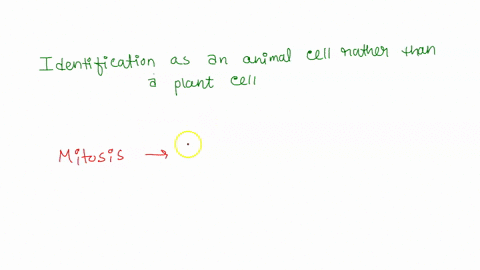 Identification as an animal cell rather than
a plant cell
Mitosis →